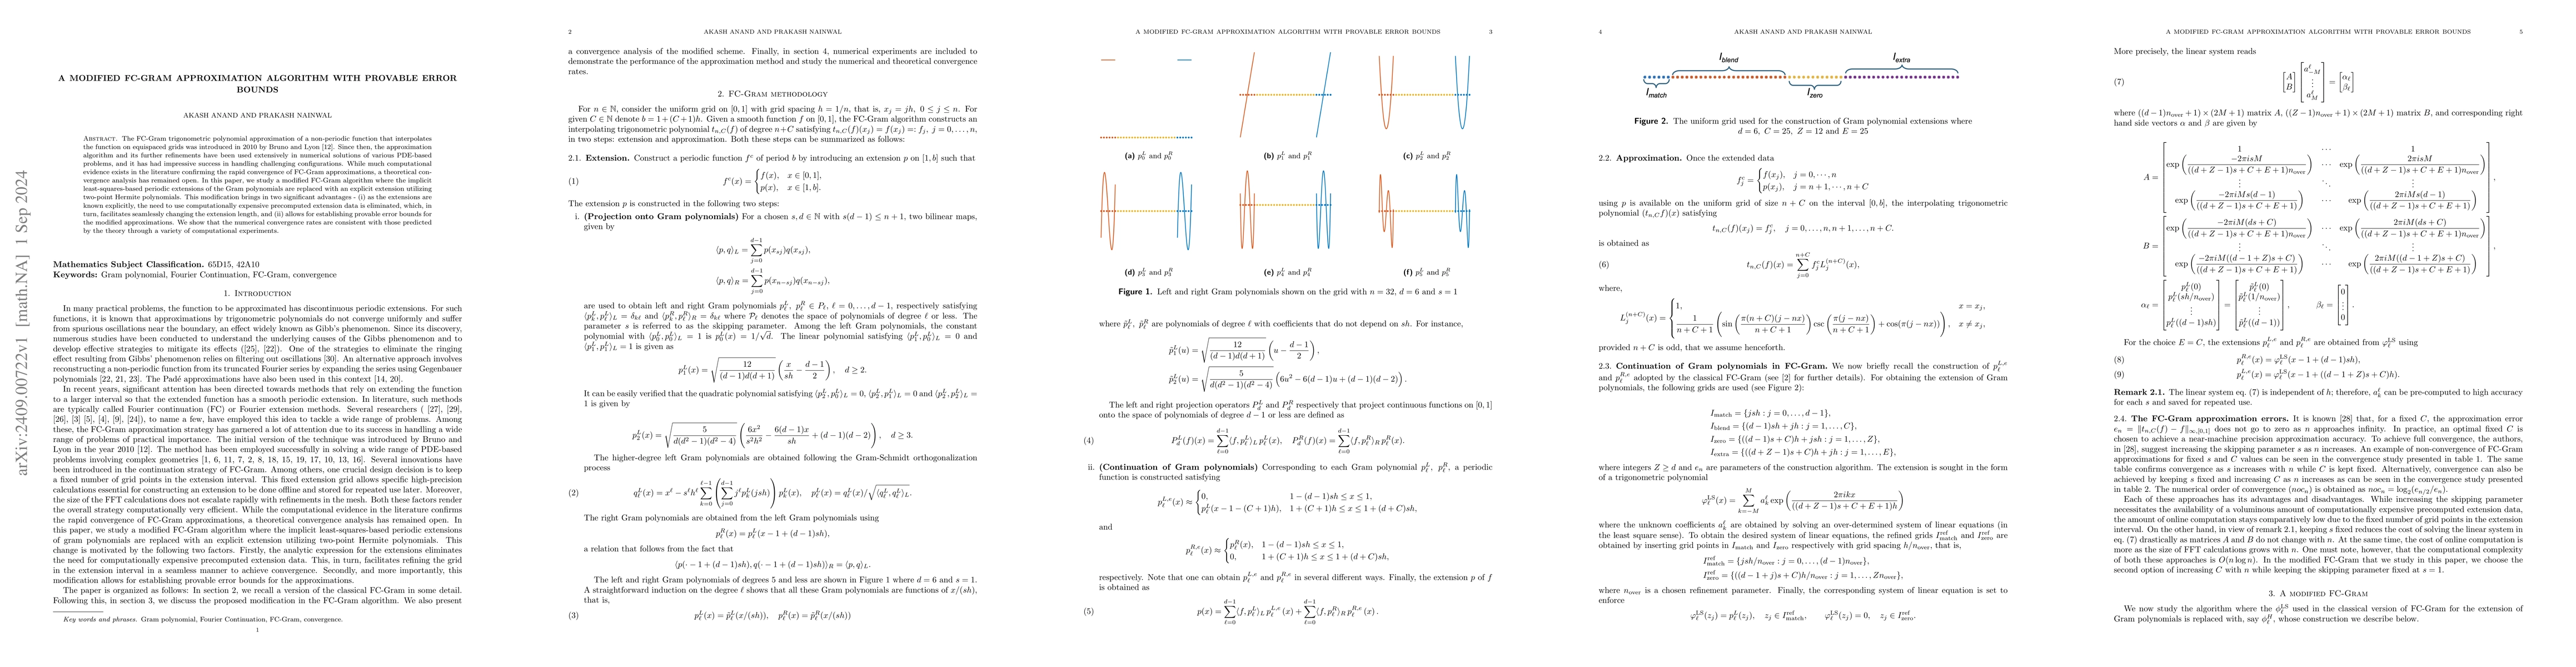 arXiv:2409.00722v1 [math.NA] 1 Sep 2024
A MODIFIED FC-GRAM APPROXIMATION ALGORITHM WITH PROVABLE ERROR
BOUNDS
AKASH ANAND AND PRAKASH NAINWAL
Abstract. The FC-Gram trigonometric polynomial approximation of a non-periodic function that interpolates
the function on equispaced grids was introduced in 2010 by Bruno and Lyon [12]. Since then, the approximation
algorithm and its further refinements have been used extensively in numerical solutions of various PDE-based
problems, and it has had impressive success in handling challenging configurations. While much computational
evidence exists in the literature confirming the rapid convergence of FC-Gram approximations, a theoretical con-
vergence analysis has remained open. In this paper, we study a modified FC-Gram algorithm where the implicit
least-squares-based periodic extensions of the Gram polynomials are replaced with an explicit extension utilizing
two-point Hermite polynomials. This modification brings in two significant advantages - (i) as the extensions are
known explicitly, the need to use computationally expensive precomputed extension data is eliminated, which, in
turn, facilitates seamlessly changing the extension length, and (ii) allows for establishing provable error bounds for
the modified approximations. We show that the numerical convergence rates are consistent with those predicted
by the theory through a variety of computational experiments.
Mathematics Subject Classification. 65D15, 42A10
Keywords: Gram polynomial, Fourier Continuation, FC-Gram, convergence
1. Introduction
In many practical problems, the function to be approximated has discontinuous periodic extensions. For such
functions, it is known that approximations by trigonometric polynomials do not converge uniformly and suffer
from spurious oscillations near the boundary, an effect widely known as Gibb's phenomenon. Since its discovery,
numerous studies have been conducted to understand the underlying causes of the Gibbs phenomenon and to
develop effective strategies to mitigate its effects ([25], [22]). One of the strategies to eliminate the ringing
effect resulting from Gibbs' phenomenon relies on filtering out oscillations [30]. An alternative approach involves
reconstructing a non-periodic function from its truncated Fourier series by expanding the series using Gegenbauer
polynomials [22, 21, 23]. The Padé approximations have also been used in this context [14, 20].
In recent years, significant attention has been directed towards methods that rely on extending the function
to a larger interval so that the extended function has a smooth periodic extension. In literature, such methods
are typically called Fourier continuation (FC) or Fourier extension methods. Several researchers ( [27], [29],
[26], [3] [5], [4], [9], [24]), to name a few, have employed this idea to tackle a wide range of problems. Among
these, the FC-Gram approximation strategy has garnered a lot of attention due to its success in handling a wide
range of problems of practical importance. The initial version of the technique was introduced by Bruno and
Lyon in the year 2010 [12]. The method has been employed successfully in solving a wide range of PDE-based
problems involving complex geometries [1, 6, 11, 7, 2, 8, 18, 15, 19, 17, 10, 13, 16]. Several innovations have
been introduced in the continuation strategy of FC-Gram. Among others, one crucial design decision is to keep
a fixed number of grid points in the extension interval. This fixed extension grid allows specific high-precision
calculations essential for constructing an extension to be done offline and stored for repeated use later. Moreover,
the size of the FFT calculations does not escalate rapidly with refinements in the mesh. Both these factors render
the overall strategy computationally very efficient. While the computational evidence in the literature confirms
the rapid convergence of FC-Gram approximations, a theoretical convergence analysis has remained open. In
this paper, we study a modified FC-Gram algorithm where the implicit least-squares-based periodic extensions
of gram polynomials are replaced with an explicit extension utilizing two-point Hermite polynomials. This
change is motivated by the following two factors. Firstly, the analytic expression for the extensions eliminates
the need for computationally expensive precomputed extension data. This, in turn, facilitates refining the grid
in the extension interval in a seamless manner to achieve convergence. Secondly, and more importantly, this
modification allows for establishing provable error bounds for the approximations.
The paper is organized as follows: In section 2, we recall a version of the classical FC-Gram in some detail.
Following this, in section 3, we discuss the proposed modification in the FC-Gram algorithm. We also present
Key words and phrases. Gram polynomial, Fourier Continuation, FC-Gram, convergence.
1
2 AKASH ANAND AND PRAKASH NAINWAL
a convergence analysis of the modified scheme. Finally, in section 4, numerical experiments are included to
demonstrate the performance of the approximation method and study the numerical and theoretical convergence
rates.
2. FC-Gram methodology
For n ∈ ℕ, consider the uniform grid on [0, 1] with grid spacing h = 1/n, that is, x_j = jh, 0 ≤ j ≤ n. For
given C ∈ ℕ denote b = 1+(C+1)h. Given a smooth function f on [0, 1], the FC-Gram algorithm constructs an
interpolating trigonometric polynomial t_{n,C}(f) of degree n+C satisfying t_{n,C}(f)(x_j) = f(x_j) =: f_j, j = 0, . . . , n,
in two steps: extension and approximation. Both these steps can be summarized as follows:
2.1. Extension. Construct a periodic function f^c of period b by introducing an extension p on [1, b] such that
(1) f^c(x) = { f(x), x ∈ [0, 1], p(x), x ∈ [1, b].
The extension p is constructed in the following two steps:
i. (Projection onto Gram polynomials) For a chosen s, d ∈ ℕ with s(d − 1) ≤ n + 1, two bilinear maps,
given by
⟨p, q⟩_L = ∑_{j=0}^{d−1} p(x_{sj})q(x_{sj}),
⟨p, q⟩_R = ∑_{j=0}^{d−1} p(x_{n−sj})q(x_{n−sj}),
are used to obtain left and right Gram polynomials p_ℓ^L, p_ℓ^R ∈ P_ℓ, ℓ = 0, . . . , d − 1, respectively satisfying
⟨p_k^L, p_ℓ^L⟩_L = δ_{kℓ} and ⟨p_k^R, p_ℓ^R⟩_R = δ_{kℓ} where P_ℓ denotes the space of polynomials of degree ℓ or less. The
parameter s is referred to as the skipping parameter. Among the left Gram polynomials, the constant
polynomial with ⟨p_0^L, p_0^L⟩_L = 1 is p_0^L(x) = 1/√d. The linear polynomial satisfying ⟨p_1^L, p_0^L⟩_L = 0 and
⟨p_1^L, p_1^L⟩_L = 1 is given as
p_1^L(x) = √(12/((d − 1)d(d + 1))) (x/sh − (d − 1)/2), d ≥ 2.
It can be easily verified that the quadratic polynomial satisfying ⟨p_2^L, p_0^L⟩_L = 0, ⟨p_2^L, p_1^L⟩_L = 0 and ⟨p_2^L, p_2^L⟩_L =
1 is given by
p_2^L(x) = √(5/(d(d² − 1)(d² − 4))) (6x²/s²h² − 6(d − 1)x/sh + (d − 1)(d − 2)), d ≥ 3.
The higher-degree left Gram polynomials are obtained following the Gram-Schmidt orthogonalization
process
(2) q_ℓ^L(x) = x^ℓ − s^ℓh^ℓ ∑_{k=0}^{ℓ−1} (∑_{j=0}^{d−1} j^ℓ p_k^L(jsh)) p_k^L(x), p_ℓ^L(x) = q_ℓ^L(x)/√⟨q_ℓ^L, q_ℓ^L⟩_L.
The right Gram polynomials are obtained from the left Gram polynomials using
p_ℓ^R(x) = p_ℓ^L(x − 1 + (d − 1)sh),
a relation that follows from the fact that
⟨p(· − 1 + (d − 1)sh), q(· − 1 + (d − 1)sh)⟩_R = ⟨p, q⟩_L.
The left and right Gram polynomials of degrees 5 and less are shown in Figure 1 where d = 6 and s = 1.
A straightforward induction on the degree ℓ shows that all these Gram polynomials are functions of x/(sh),
that is,
(3) p_ℓ^L(x) = p̃_ℓ^L(x/(sh)), p_ℓ^R(x) = p̃_ℓ^R(x/(sh))
A MODIFIED FC-GRAM APPROXIMATION ALGORITHM WITH PROVABLE ERROR BOUNDS 3
(a) p_0^L and p_0^R
(b) p_1^L and p_1^R
(c) p_2^L and p_2^R
(d) p_3^L and p_3^R
(e) p_4^L and p_4^R
(f) p_5^L and p_5^R
Figure 1. Left and right Gram polynomials shown on the grid with n = 32, d = 6 and s = 1
where p̃_ℓ^L, p̃_ℓ^R are polynomials of degree ℓ with coefficients that do not depend on sh. For instance,
p̃_1^L(u) = √(12/((d − 1)d(d + 1))) (u − (d − 1)/2),
p̃_2^L(u) = √(5/(d(d² − 1)(d² − 4))) (6u² − 6(d − 1)u + (d − 1)(d − 2)).
The left and right projection operators P_d^L and P_d^R respectively that project continuous functions on [0, 1]
onto the space of polynomials of degree d − 1 or less are defined as
(4) P_d^L(f)(x) = ∑_{ℓ=0}^{d−1} ⟨f, p_ℓ^L⟩_L p_ℓ^L(x), P_d^R(f)(x) = ∑_{ℓ=0}^{d−1} ⟨f, p_ℓ^R⟩_R p_ℓ^R(x).
ii. (Continuation of Gram polynomials) Corresponding to each Gram polynomial p_ℓ^L, p_ℓ^R, a periodic
function is constructed satisfying
p_ℓ^{L,e}(x) ≈ { 0, 1 − (d − 1)sh ≤ x ≤ 1, p_ℓ^L(x − 1 − (C + 1)h), 1 + (C + 1)h ≤ x ≤ 1 + (d + C)sh,
and
p_ℓ^{R,e}(x) ≈ { p_ℓ^R(x), 1 − (d − 1)sh ≤ x ≤ 1, 0, 1 + (C + 1)h ≤ x ≤ 1 + (d + C)sh,
respectively. Note that one can obtain p_ℓ^{L,e} and p_ℓ^{R,e} in several different ways. Finally, the extension p of f
is obtained as
(5) p(x) = ∑_{ℓ=0}^{d−1} ⟨f, p_ℓ^L⟩_L p_ℓ^{L,e}(x) + ∑_{ℓ=0}^{d−1} ⟨f, p_ℓ^R⟩_R p_ℓ^{R,e}(x).
4 AKASH ANAND AND PRAKASH NAINWAL
I_blend
I_extra
I_match
I_zero
Figure 2. The uniform grid used for the construction of Gram polynomial extensions where
d = 6, C = 25, Z = 12 and E = 25
2.2. Approximation. Once the extended data
f_j^c = { f(x_j), j = 0, · · · , n, p(x_j), j = n + 1, · · · , n + C
using p is available on the uniform grid of size n + C on the interval [0, b], the interpolating trigonometric
polynomial (t_{n,C}f)(x) satisfying
t_{n,C}(f)(x_j) = f_j^c, j = 0, . . . , n, n + 1, . . . , n + C.
is obtained as
(6) t_{n,C}(f)(x) = ∑_{j=0}^{n+C} f_j^c L_j^{(n+C)}(x),
where,
L_j^{(n+C)}(x) = { 1, x = x_j, 1/(n + C + 1) (sin(π(n + C)(j − nx)/(n + C + 1)) csc(π(j − nx)/(n + C + 1)) + cos(π(j − nx))), x ≠ x_j,
provided n + C is odd, that we assume henceforth.
2.3. Continuation of Gram polynomials in FC-Gram. We now briefly recall the construction of p_ℓ^{L,e}
and p_ℓ^{R,e} adopted by the classical FC-Gram (see [2] for further details). For obtaining the extension of Gram
polynomials, the following grids are used (see Figure 2):
I_match = {jsh : j = 0, . . . , d − 1},
I_blend = {(d − 1)sh + jh : j = 1, . . . , C},
I_zero = {((d − 1)s + C)h + jsh : j = 1, . . . , Z},
I_extra = {((d + Z − 1)s + C)h + jh : j = 1, . . . , E},
where integers Z ≥ d and e_n are parameters of the construction algorithm. The extension is sought in the form
of a trigonometric polynomial
φ_ℓ^LS(x) = ∑_{k=−M}^{M} a_k^ℓ exp(2πikx/(((d + Z − 1)s + C + E + 1)h))
where the unknown coefficients a_k^ℓ are obtained by solving an over-determined system of linear equations (in
the least square sense). To obtain the desired system of linear equations, the refined grids I_match^ref and I_zero^ref are
obtained by inserting grid points in I_match and I_zero respectively with grid spacing h/n_over, that is,
I_match^ref = {jsh/n_over : j = 0, . . . , (d − 1)n_over},
I_zero^ref = {((d − 1 + j)s + C)h/n_over : j = 1, . . . , Zn_over},
where n_over is a chosen refinement parameter. Finally, the corresponding system of linear equation is set to
enforce
φ_ℓ^LS(z_j) = p_ℓ^L(z_j), z_j ∈ I_match^ref, φ_ℓ^LS(z_j) = 0, z_j ∈ I_zero^ref.
A MODIFIED FC-GRAM APPROXIMATION ALGORITHM WITH PROVABLE ERROR BOUNDS 5
More precisely, the linear system reads
(7) [A B] [a_{−M}^ℓ ⋮ a_M^ℓ] = [α_ℓ β_ℓ]
where ((d − 1)n_over + 1) × (2M + 1) matrix A, ((Z − 1)n_over + 1) × (2M + 1) matrix B, and corresponding right
hand side vectors α and β are given by
A = [ 1 · · · 1
exp(−2πisM/(((d + Z − 1)s + C + E + 1)n_over)) · · · exp(2πisM/(((d + Z − 1)s + C + E + 1)n_over))
⋮ ⋱ ⋮
exp(−2πiMs(d − 1)/((d + Z − 1)s + C + E + 1)) · · · exp(2πiMs(d − 1)/((d + Z − 1)s + C + E + 1)) ],
B = [ exp(−2πiM(ds + C)/(((d + Z − 1)s + C + E + 1)n_over)) · · · exp(2πiM(ds + C)/(((d + Z − 1)s + C + E + 1)n_over))
⋮ ⋱ ⋮
exp(−2πiM((d − 1 + Z)s + C)/(((d + Z − 1)s + C + E + 1)n_over)) · · · exp(2πiM((d − 1 + Z)s + C)/(((d + Z − 1)s + C + E + 1)n_over)) ],
α_ℓ = [p_ℓ^L(0) p_ℓ^L(sh/n_over) ⋮ p_ℓ^L((d − 1)sh)] = [p̃_ℓ^L(0) p̃_ℓ^L(1/n_over) ⋮ p̃_ℓ^L((d − 1))], β_ℓ = [0 ⋮ 0].
For the choice E = C, the extensions p_ℓ^{L,e} and p_ℓ^{R,e} are obtained from φ_ℓ^LS using
(8) p_ℓ^{R,e}(x) = φ_ℓ^LS(x − 1 + (d − 1)sh),
(9) p_ℓ^{L,e}(x) = φ_ℓ^LS(x − 1 + ((d − 1 + Z)s + C)h).
Remark 2.1. The linear system eq. (7) is independent of h; therefore, a_k^ℓ can be pre-computed to high accuracy
for each s and saved for repeated use.
2.4. The FC-Gram approximation errors. It is known [28] that, for a fixed C, the approximation error
e_n = ‖t_{n,C}(f) − f‖_{∞,[0,1]} does not go to zero as n approaches infinity. In practice, an optimal fixed C is
chosen to achieve a near-machine precision approximation accuracy. To achieve full convergence, the authors,
in [28], suggest increasing the skipping parameter s as n increases. An example of non-convergence of FC-Gram
approximations for fixed s and C values can be seen in the convergence study presented in table 1. The same
table confirms convergence as s increases with n while C is kept fixed. Alternatively, convergence can also be
achieved by keeping s fixed and increasing C as n increases as can be seen in the convergence study presented
in table 2. The numerical order of convergence (noc_n) is obtained as noc_n = log_2(e_{n/2}/e_n).
Each of these approaches has its advantages and disadvantages. While increasing the skipping parameter
necessitates the availability of a voluminous amount of computationally expensive precomputed extension data,
the amount of online computation stays comparatively low due to the fixed number of grid points in the extension
interval. On the other hand, in view of remark 2.1, keeping s fixed reduces the cost of solving the linear system in
eq. (7) drastically as matrices A and B do not change with n. At the same time, the cost of online computation is
more as the size of FFT calculations grows with n. One must note, however, that the computational complexity
of both these approaches is O(n log n). In the modified FC-Gram that we study in this paper, we choose the
second option of increasing C with n while keeping the skipping parameter fixed at s = 1.
3. A modified FC-Gram
We now study the algorithm where the ϕ_ℓ^LS used in the classical version of FC-Gram for the extension of
Gram polynomials is replaced with, say ϕ_ℓ^H, whose construction we describe below.